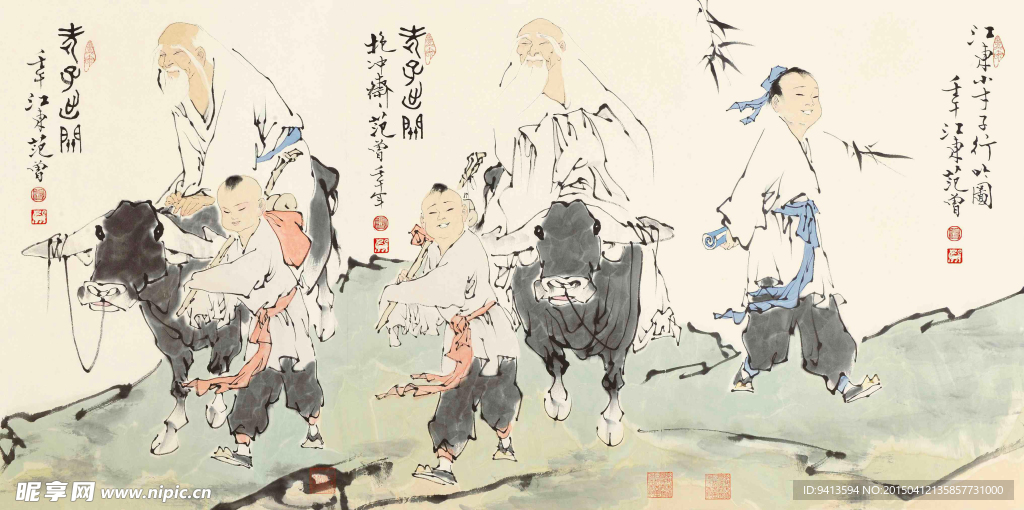 江東小才子行吟圖
壬午江東范曾
老子出關
抱冲齋范曾壬午
老子出關
壬午江東范曾
昵享网 www.nipic.cn
ID:9413594 NO:20150412135857731000